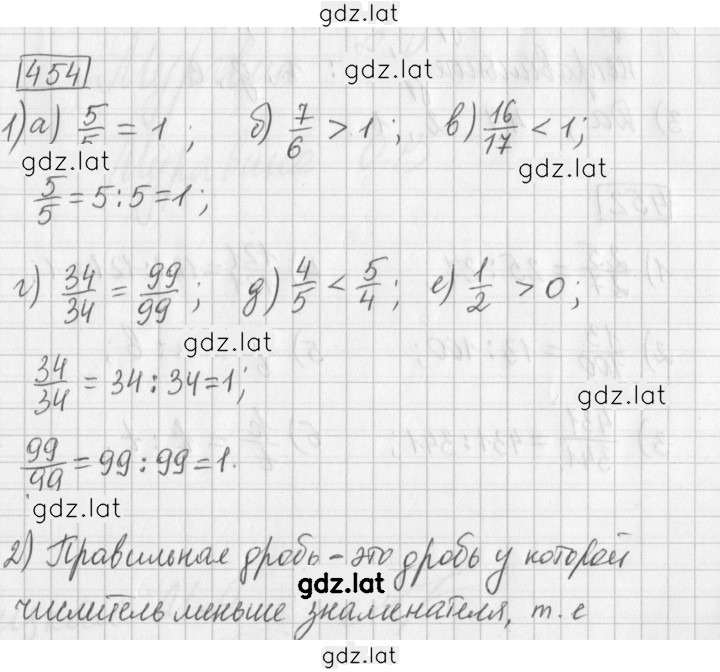 gdz.lat
454
gdz.lat
1) а) 5/5 = 1 ; б) 7/6 > 1 ; в) 16/17 < 1 ;
gdz.lat
gdz.lat
5/5 = 5 : 5 = 1 ;
г) 34/34 = 99/99 ; д) 4/5 < 5/4 ; е) 1/2 > 0 ;
gdz.lat
34/34 = 34 : 34 = 1 ;
gdz.lat
99/99 = 99 : 99 = 1.
gdz.lat
2) Правильная дробь - это дробь у которой
gdz.lat
числитель меньше знаменателя, т. е
gdz.lat